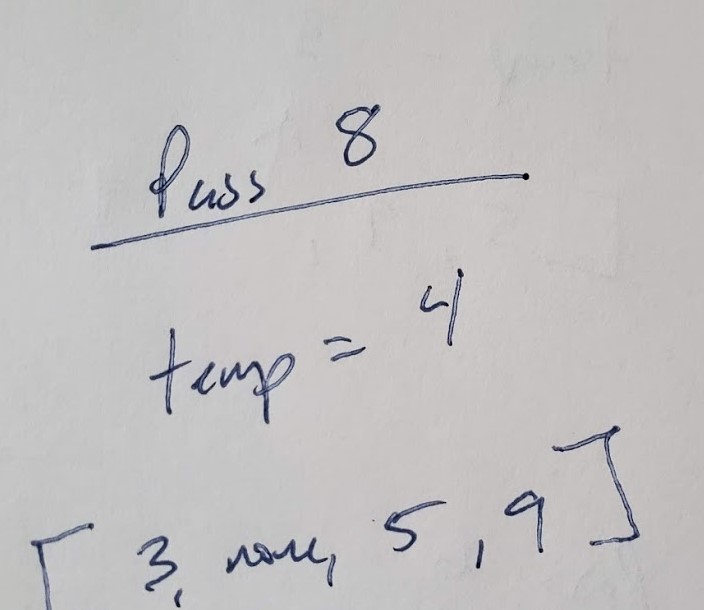 Pass 8
temp = 4
[ 3, none, 5, 9 ]